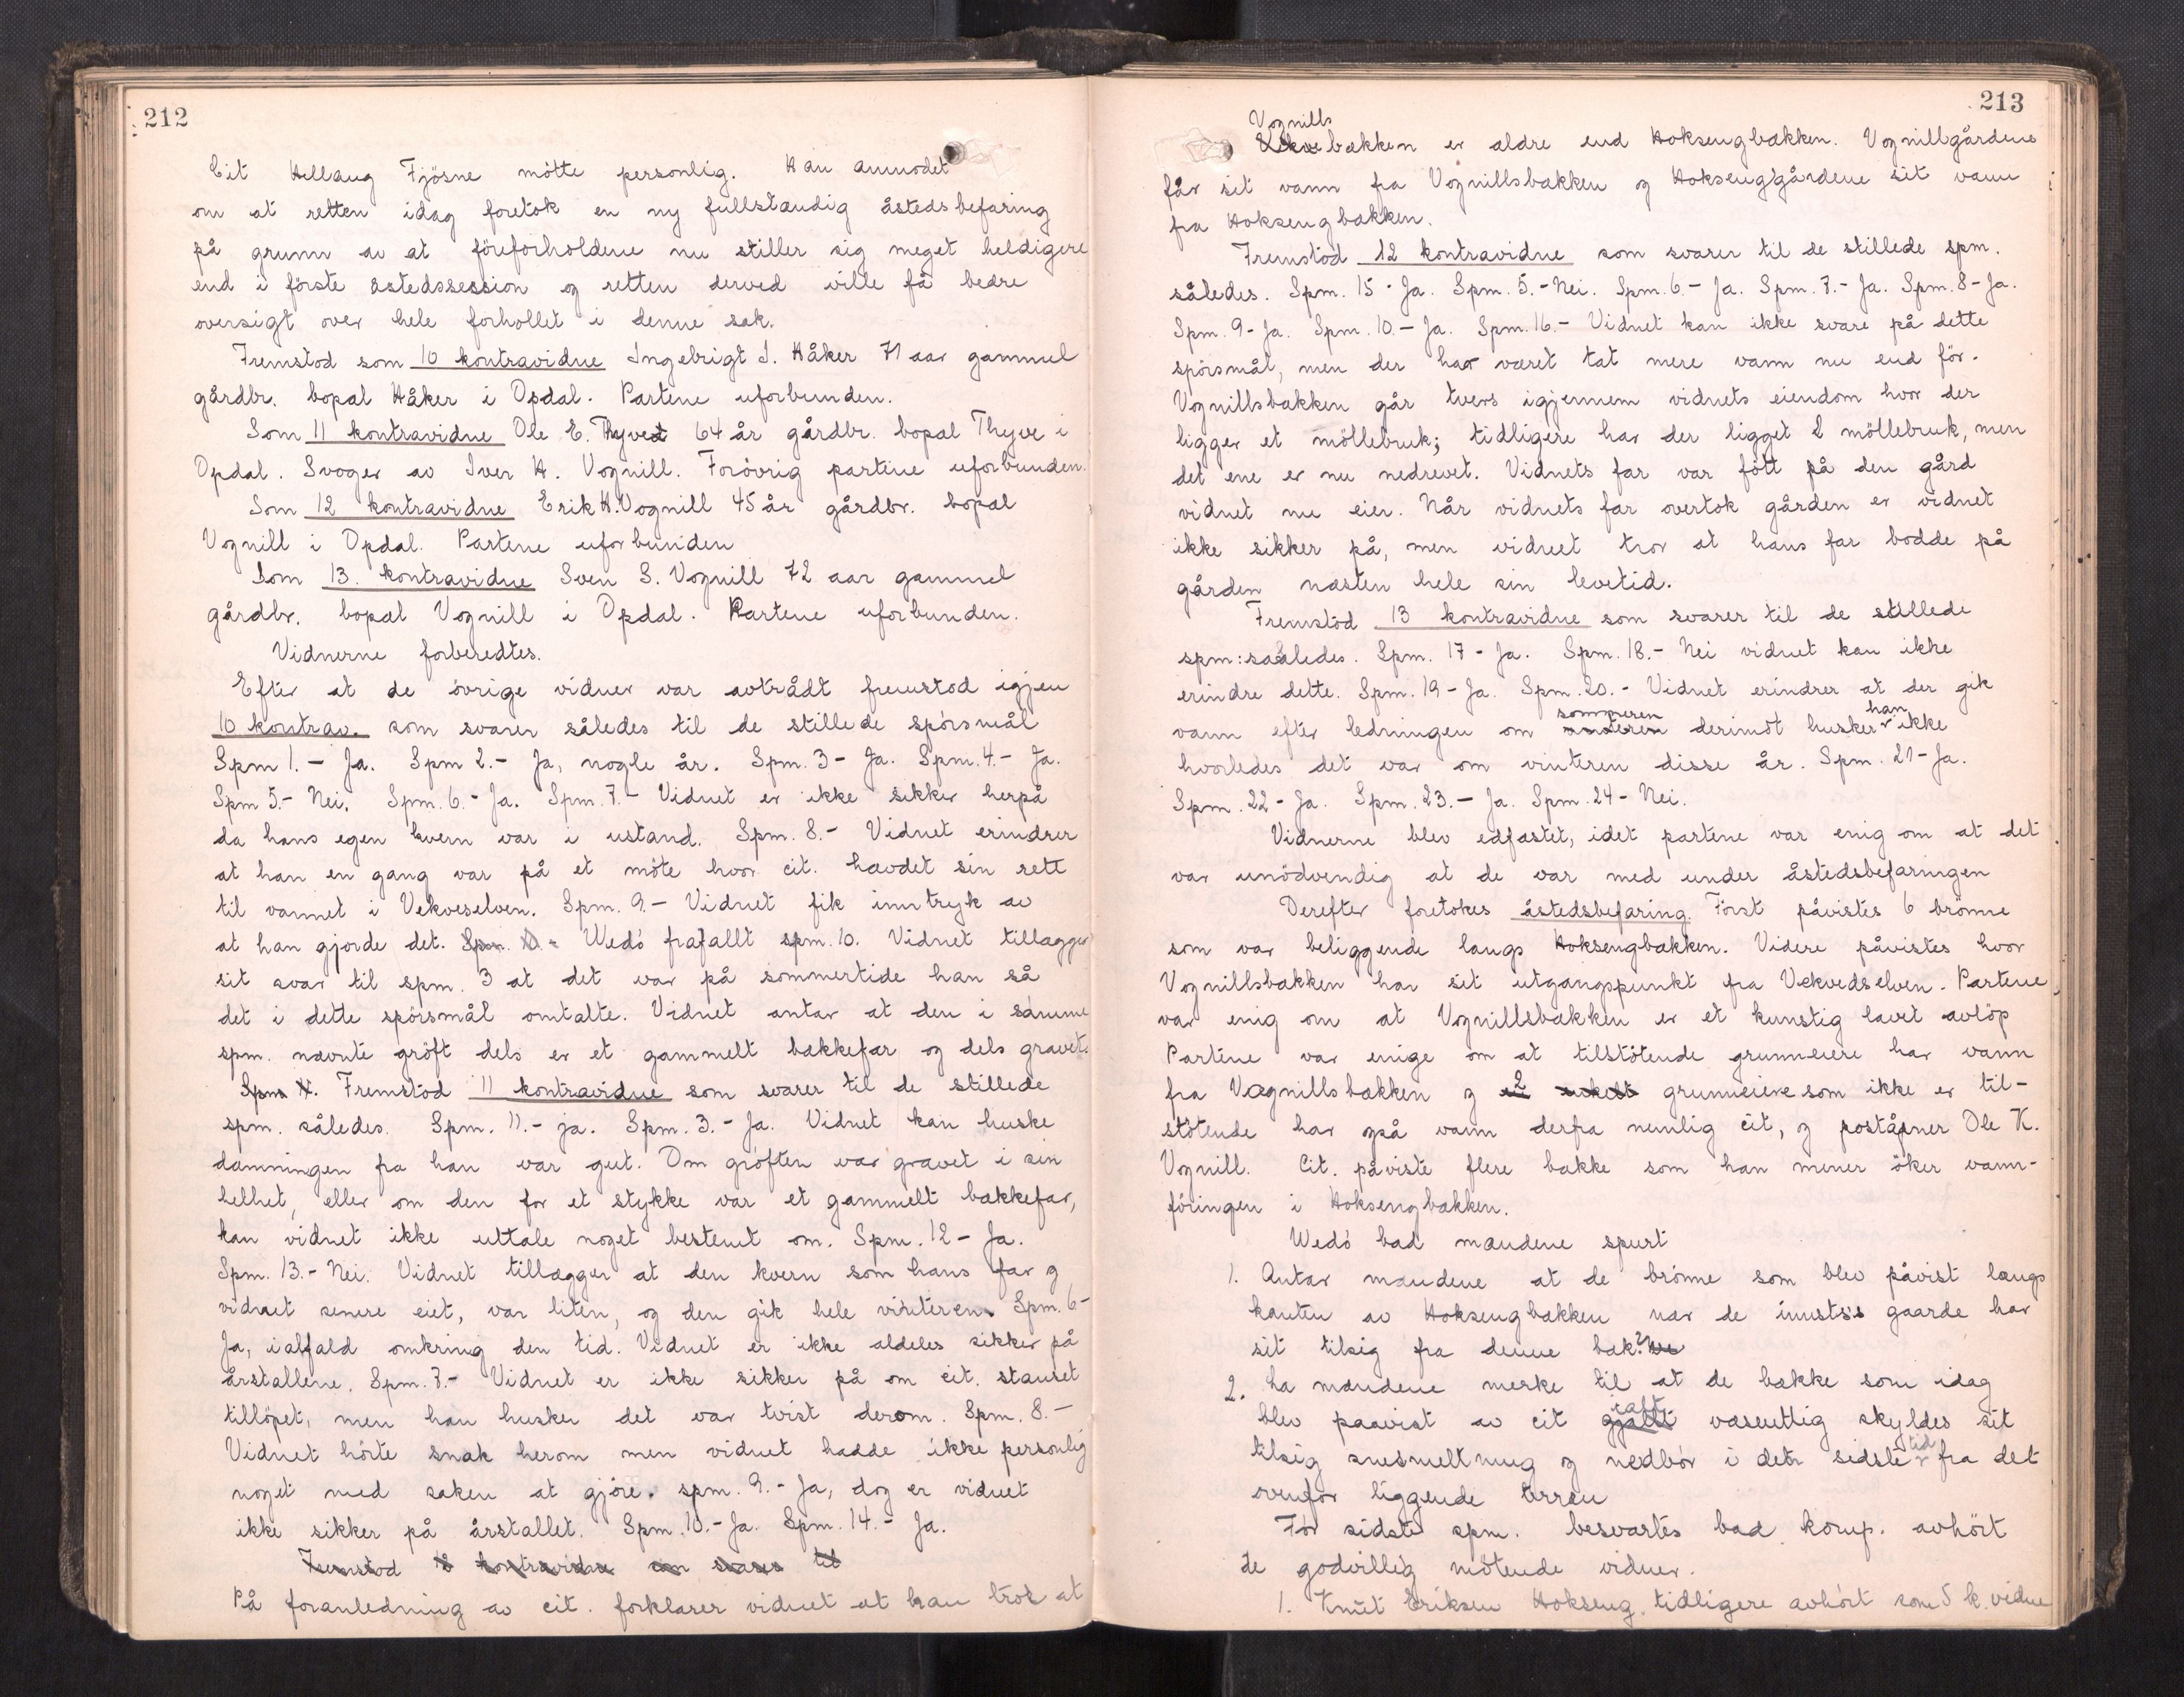 212
Cit Hellaug Fjösne mötte personlig. Han anmodet
om at retten idag foretok en ny fullstændig åstedsbefaring
på grunn av at föreforholdene nu stiller sig meget heldigere
end i förste åstedssession og retten derved ville få bedre
oversigt over hele forhollet i denne sak.
Fremstod som 10 kontravidne Ingebrigt I. Håker 71 aar gammel
gårdbr. bopal Håker i Opdal. Partene uforbunden.
Som 11 kontravidne Ole E. Thyve 64 år gårdbr. bopal Thyve i
Opdal. Svoger av Iver H. Vognill. Forövrig partene uforbunden.
Som 12 kontravidne Erik H. Vognill 45 år gårdbr. bopal
Vognill i Opdal. Partene uforbunden
Som 13. kontravidne Sven S. Vognill 72 aar gammel
gårdbr. bopal Vognill i Opdal. Partene uforbunden.
Vidnerne forberedtes.
Efter at de övrige vidner var avtrådt fremstod igjen
10 kontrav. som svarer således til de stillede spörsmål
Spm 1. - Ja. Spm 2. - Ja, nogle år. Spm. 3 - Ja. Spm. 4. - Ja.
Spm 5. - Nei. Spm. 6. - Ja. Spm. 7. - Vidnet er ikke sikker herpå
da hans egen kvern var i ustand. Spm. 8. - Vidnet erindrer
at han en gang var på et möte hvor cit. hævdet sin rett
til vannet i Vekveselven. Spm. 9. - Vidnet fik inntryk av
at han gjorde det. Spm. 10. - Wedö frafallt spm. 10. Vidnet tillægger
sit svar til spm. 3 at det var på sommertide han så
det i dette spörsmål omtalte. Vidnet antar at den i samme
spm. nævnte gröft dels er et gammelt bækkefar og dels gravet.
Spm. Fremstod 11 kontravidne som svarer til de stillede
spm. således. Spm. 11. - ja. Spm. 3. - Ja. Vidnet kan huske
dæmningen fra han var gut. Om gröften var gravet i sin
helhet, eller om den for et stykke var et gammelt bækkefar,
kan vidnet ikke uttale noget bestemt om. Spm. 12 - Ja.
Spm. 13. - Nei. Vidnet tillægger at den kvern som hans far og
vidnet senere eiet, var liten, og den gik hele vinteren. Spm. 6 -
Ja, ialfald omkring den tid. Vidnet er ikke aldeles sikker på
årstallene. Spm. 7. - Vidnet er ikke sikker på om cit. stanset
tillöpet, men han husker det var tvist derom. Spm. 8. -
Vidnet hörte snak herom men vidnet hadde ikke personlig
noget med saken at gjöre. spm. 9. - Ja, dog er vidnet
ikke sikker på årstallet. Spm. 10. - Ja. Spm. 14. - Ja.
Fremstod 12 kontravidne som svarer til
På foranledning av cit. forklarer vidnet at han tror at
213
Vognills
bækken er ældre end Hoksengbækken. Vognillgårdene
får sit vann fra Vognillsbækken og Hoksenggårdene sit vann
fra Hoksengbækken.
Fremstod 12 kontravidne som svarer til de stillede spm.
således. Spm. 15 - Ja. Spm. 5. - Nei. Spm. 6. - Ja. Spm. 7. - Ja. Spm. 8 - Ja.
Spm. 9 - Ja. Spm. 10. - Ja. Spm. 16. - Vidnet kan ikke svare på dette
spörsmål, men der har været tat mere vann nu end för.
Vognillsbækken går tvers igjennem vidnets eiendom hvor der
ligger et möllebruk; tidligere har der ligget 2 möllebruk, men
det ene er nu nedrevet. Vidnets far var fött på den gård
vidnet nu eier. Når vidnets far overtok gården er vidnet
ikke sikker på, men vidnet tror at hans far bodde på
gården næsten hele sin levetid.
Fremstod 13 kontravidne som svarer til de stillede
spm: saaledes. Spm. 17 - Ja. Spm. 18. - Nei vidnet kan ikke
erindre dette. Spm. 19 - Ja. Spm. 20. - Vidnet erindrer at der gik
vann efter ledningen om vinteren sommeren derimot husker han ikke
hvorledes det var om vinteren disse år. Spm. 21 - Ja.
Spm. 22 - Ja. Spm. 23. - Ja. Spm. 24 - Nei.
Vidnerne blev edfæstet, idet partene var enig om at det
var unödvendig at de var med under åstedsbefaringen
Derefter foretokes åstedsbefaring. Först påvistes 6 brönne
som var beliggende langs Hoksengbækken. Videre påvistes hvor
Vognillsbækken har sit utgangspunkt fra Vekvedselven. Partene
var enig om at Vognillsbækken er et kunstig lavet avlöp
Partene var enige om at tilstötende grunneiere har vann
fra Vognillsbækken og 2 grunneiere som ikke er til-
stötende har også vann derfra nemlig cit, og poståpner Ole K.
Vognill. Cit. påviste flere bække som han mener öker vann-
föringen i Hoksengbækken.
Wedö bad mændene spurt
1. Antar mændene at de brönne som blev påvist langs
kanten av Hoksengbækken nær de innsts's gaarde har
sit tilsig fra denne bæk?
2. Ha mændene merke til at de bække som idag
blev paavist av cit ialt væsentlig skyldes sit
tilsig snesmeltning og nedbör i den sidste tid fra det
ovenfor liggende terræn
För sidste spm. besvartes bad komp. avhört
de godvillig mötende vidner.
1. Knut Eriksen Hokseng. tidligere avhört som 5 k. vidne